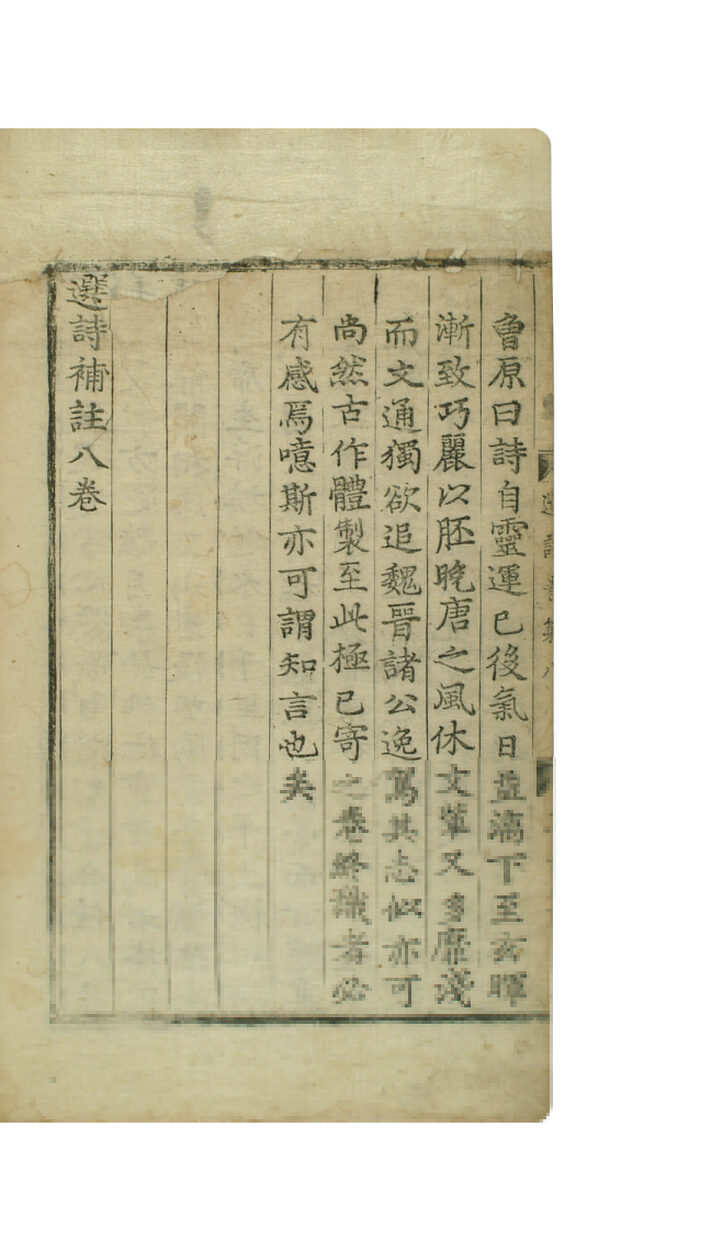 魯原曰詩自靈運已後氣日益漓下至玄暉
漸致巧麗以胚晚唐之風休文輩又多靡淺
而文通獨欲追魏晉諸公逸駕其志似亦可
尚然古作體製至此極已寄之卷終識者必
有感焉噫斯亦可謂知言也矣
選詩補註八卷